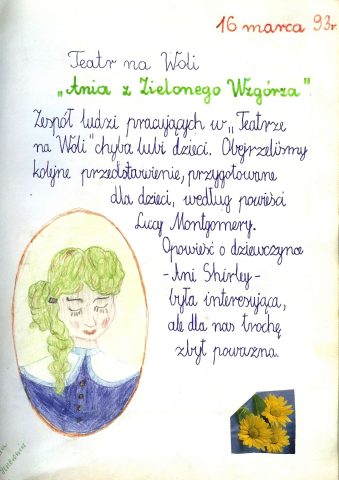 16 marca 93r.
Teatr na Woli
„Ania z Zielonego Wzgórza"
Zespół ludzi pracujących w „Teatrze
na Woli" chyba lubi dzieci. Obejrzeliśmy
kolejne przedstawienie, przygotowane
dla dzieci, według powieści
Lucy Montgomery.
Opowieść o dziewczynce
-Ani Shirley-
była interesująca,
ale dla nas trochę
zbyt poważna.